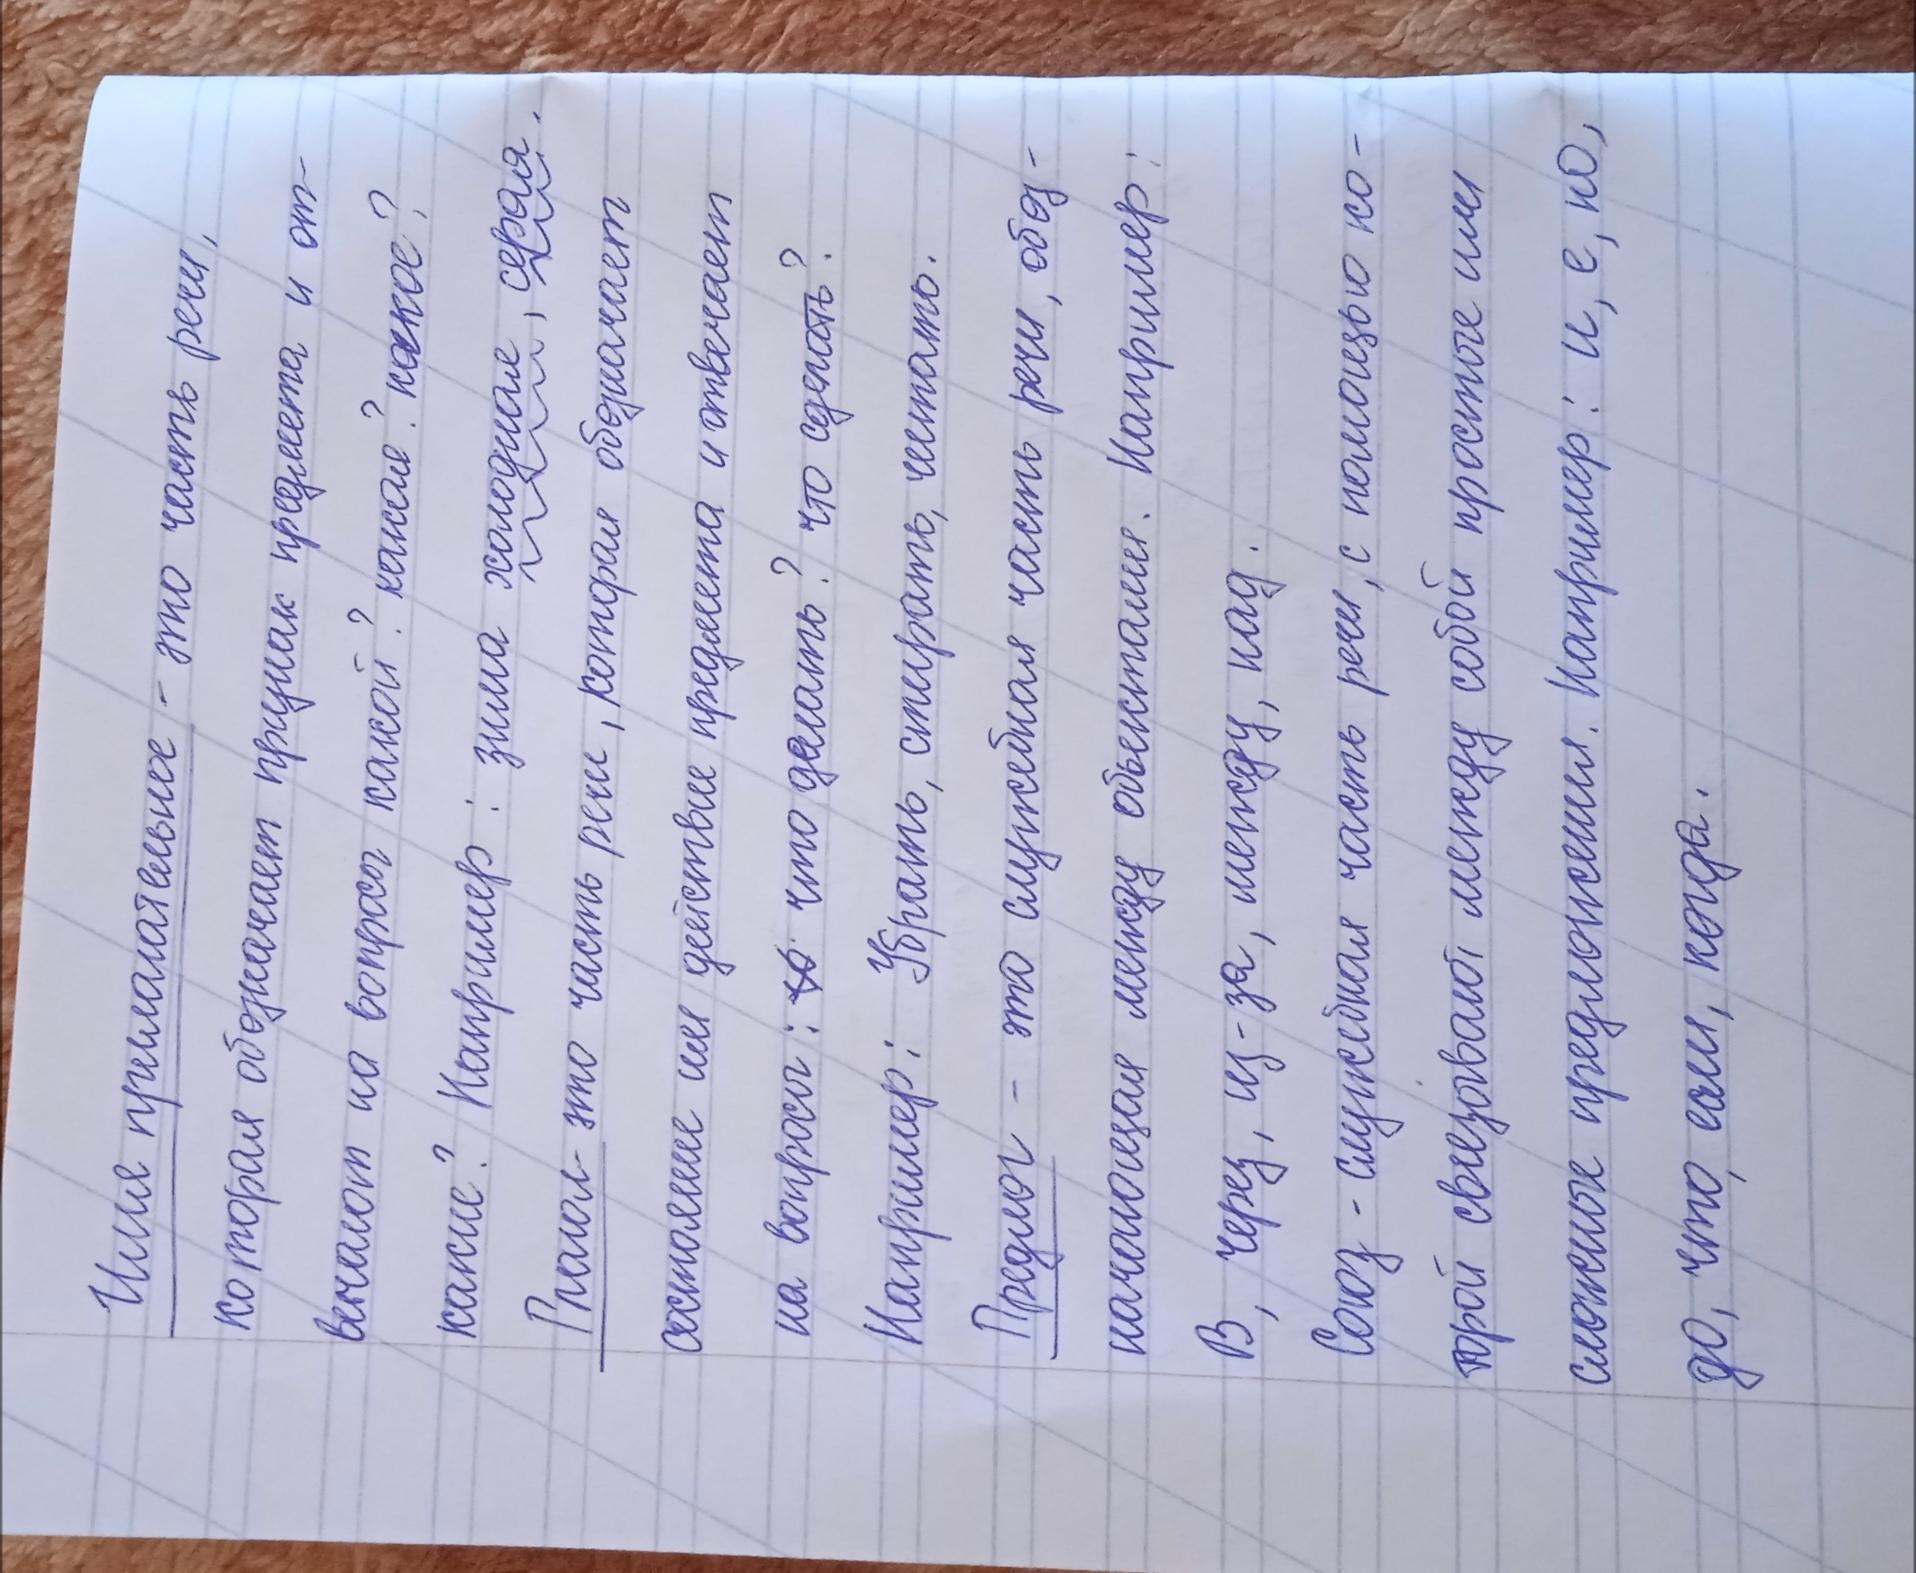 Имя прилагательное - это часть речи,
которая обозначает признак предмета и от-
вечают на вопросы какой? какая? какое?
какие? Например: зима холодная, серая.
Глагол- это часть речи, которая обозначает
состояние или действие предмета и отвечает
на вопросы: что делать? что сделать?
Например: Убрать, стирать, читать.
Предлог - это служебная часть речи, обоз-
начающая между объектами. Например:
В, через, из-за, между, над.
Союз - служебная часть речи, с помощью ко-
торой связывают между собой простые или
сложные предложения. Например: и, е, но,
до, что, если, когда.